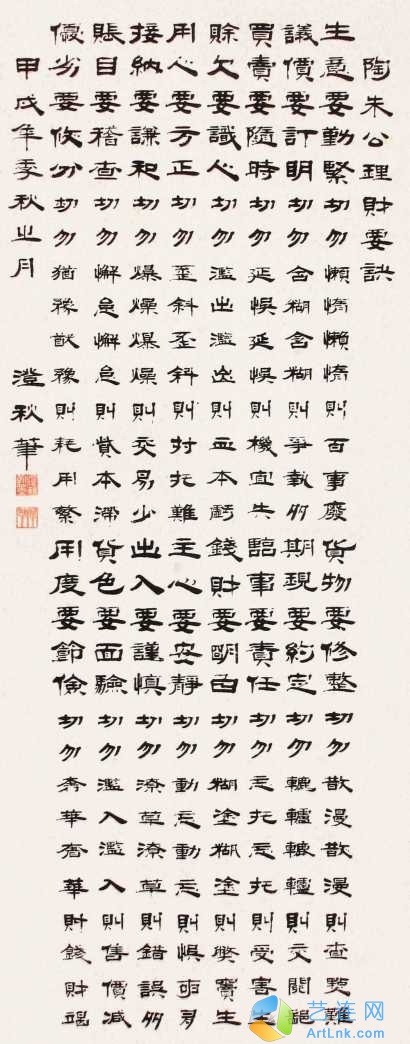 陶朱公理財要訣
生意要勤緊切勿懶惰懶惰則百事廢貨物要修整切勿散漫散漫則查點難
議價要訂明切勿含糊含糊則爭執多期現要約定切勿轆轤轆轤則交關絕
買賣要隨時切勿延悞延悞則機宜失臨事要責任切勿妄托妄托則受害生
賒欠要識人切勿濫出濫出則血本虧錢財要明白切勿糊塗糊塗則獘竇生
用心要方正切勿歪斜歪斜則付托難主心要安靜切勿動妄動妄則悞事多
接納要謙和切勿爆燥爆燥則交易少出入要謹慎切勿潦草潦草則錯誤多
賬目要稽查切勿懈怠懈怠則貲本滯貨色要面驗切勿濫入濫入則售價減
優劣要攸分切勿猶豫猶豫則耗用繁用度要節儉切勿奢華奢華則錢財竭
甲戌年季秋之月 澄秋筆
艺连网
ArtLnk.com